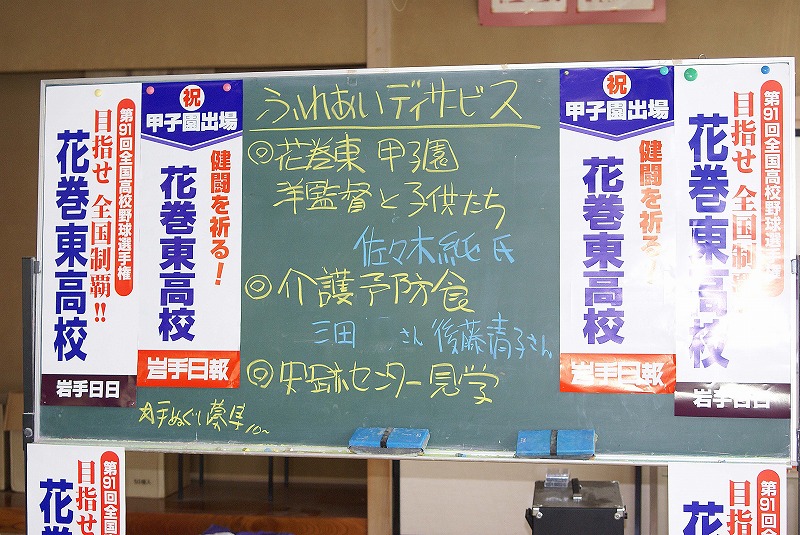 第91回全国高校野球選手権
目指せ 全国制覇!!
花巻東高校
岩手日日
祝
甲子園出場
健闘を祈る!
花巻東高校
岩手日報
ふれあいデイサービス
◎花巻東 甲子園
洋監督と子供たち
佐々木純氏
◎介護予防食
三田 さん 後藤清子さん
◎史跡センター見学
祝
甲子園出場
健闘を祈る!
花巻東高校
岩手日報
第91回全国高校野球選手権
目指せ 全国制覇!!
花巻東高校
岩手日日
第91回全国
目指せ
花
第91回全国
目指せ
花